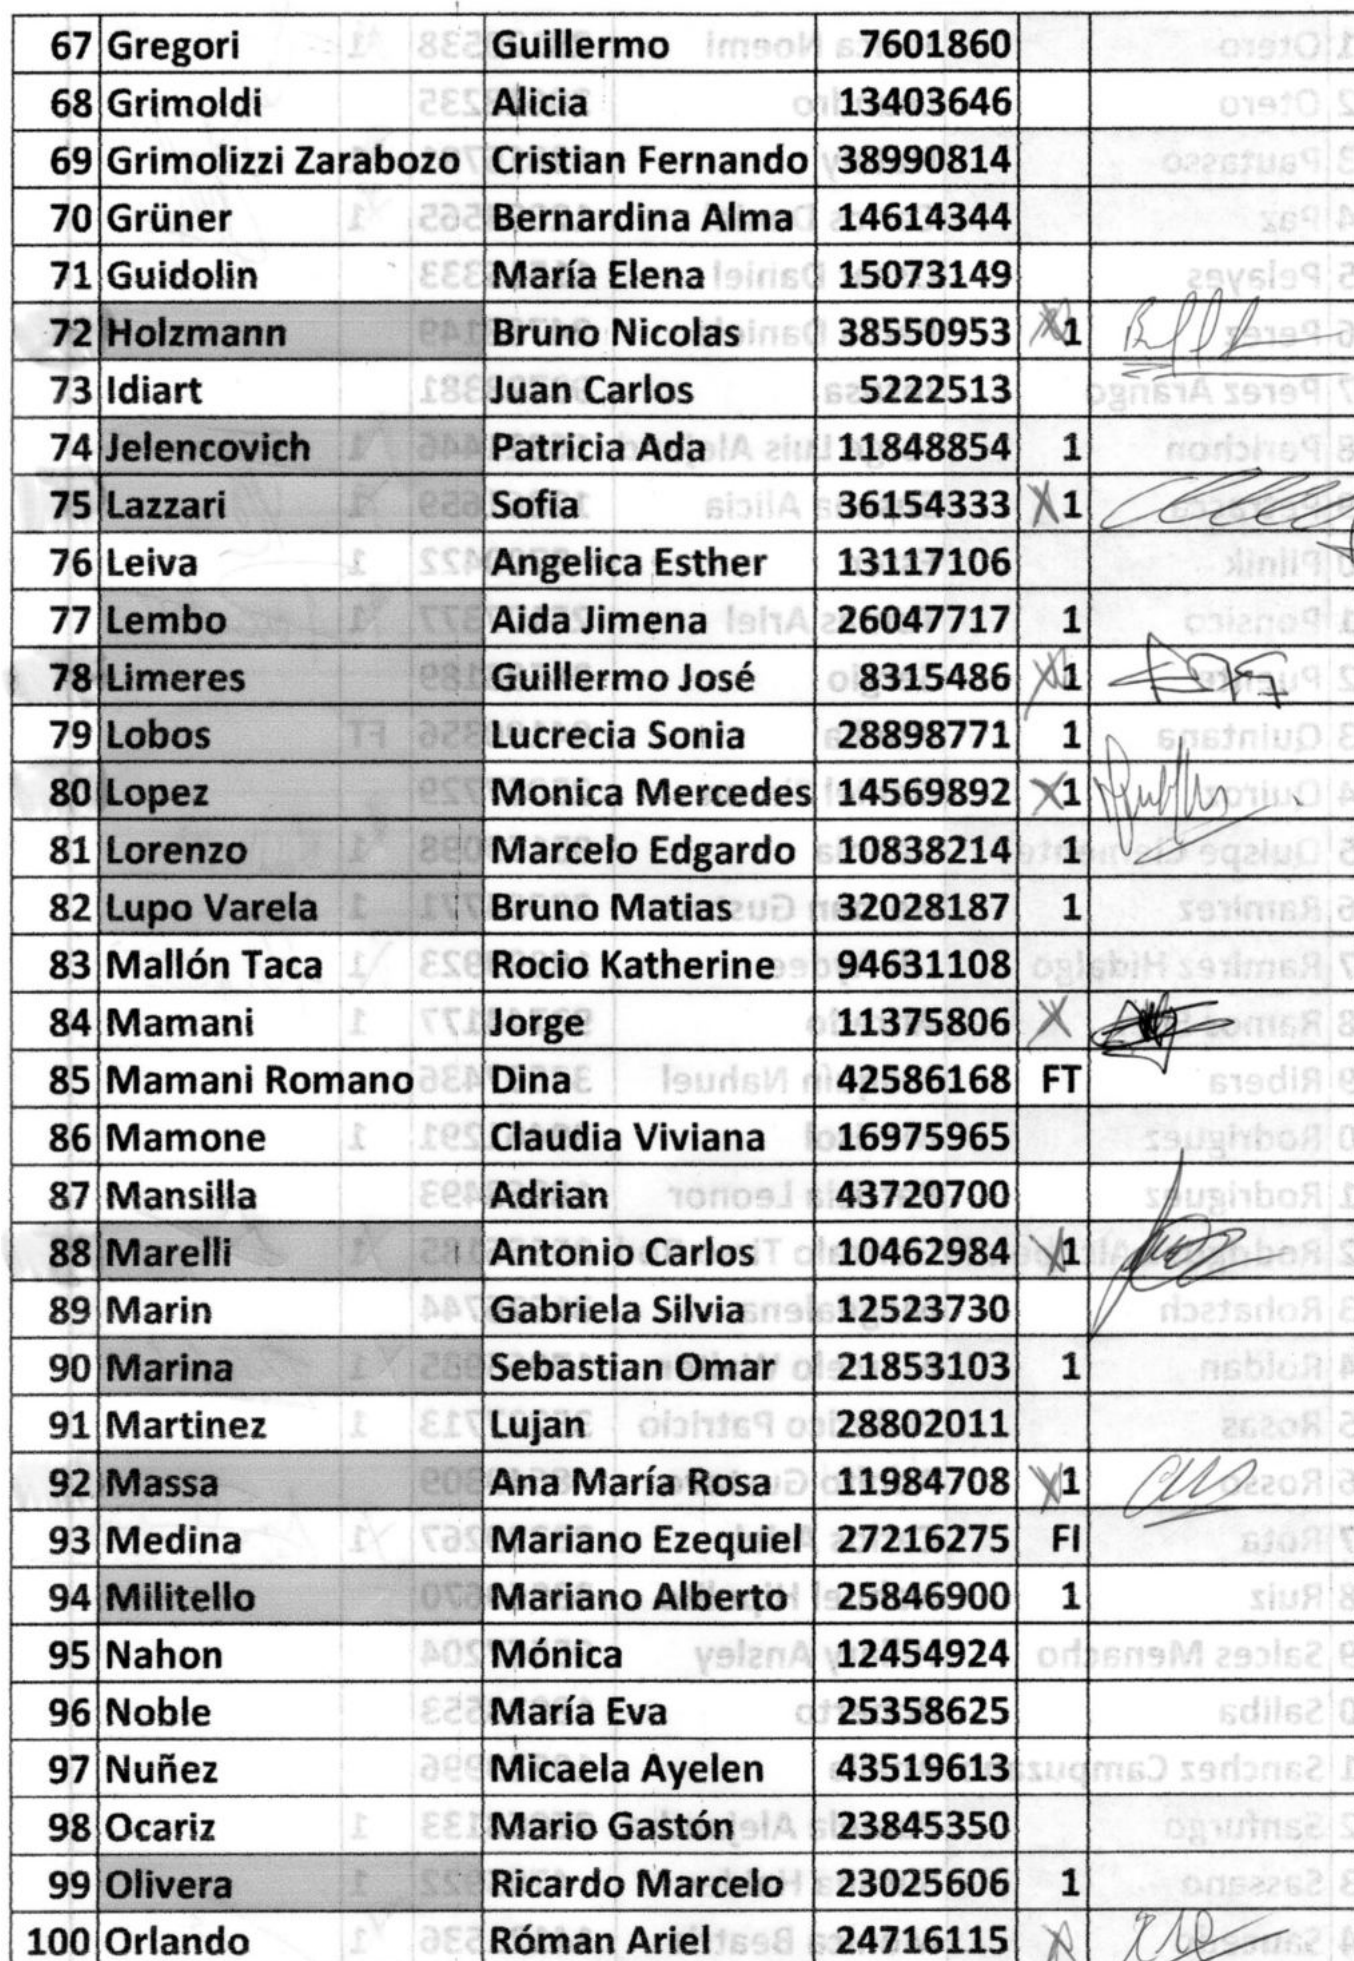 67 Gregori Guillermo 7601860
68 Grimoldi Alicia 13403646
69 Grimolizzi Zarabozo Cristian Fernando 38990814
70 Grüner Bernardina Alma 14614344
71 Guidolin María Elena 15073149
72 Holzmann Bruno Nicolas 38550953 X 1
73 Idiart Juan Carlos 5222513
74 Jelencovich Patricia Ada 11848854 1
75 Lazzari Sofia 36154333 X 1
76 Leiva Angelica Esther 13117106
77 Lembo Aida Jimena 26047717 1
78 Limeres Guillermo José 8315486 X 1
79 Lobos Lucrecia Sonia 28898771 1
80 Lopez Monica Mercedes 14569892 X 1
81 Lorenzo Marcelo Edgardo 10838214 1
82 Lupo Varela Bruno Matias 32028187 1
83 Mallón Taca Rocio Katherine 94631108
84 Mamani Jorge 11375806 X
85 Mamani Romano Dina 42586168 FT
86 Mamone Claudia Viviana 16975965
87 Mansilla Adrian 43720700
88 Marelli Antonio Carlos 10462984 X 1
89 Marin Gabriela Silvia 12523730
90 Marina Sebastian Omar 21853103 1
91 Martinez Lujan 28802011
92 Massa Ana María Rosa 11984708 X 1
93 Medina Mariano Ezequiel 27216275 FI
94 Militello Mariano Alberto 25846900 1
95 Nahon Mónica 12454924
96 Noble María Eva 25358625
97 Nuñez Micaela Ayelen 43519613
98 Ocariz Mario Gastón 23845350
99 Olivera Ricardo Marcelo 23025606 1
100 Orlando Róman Ariel 24716115 X